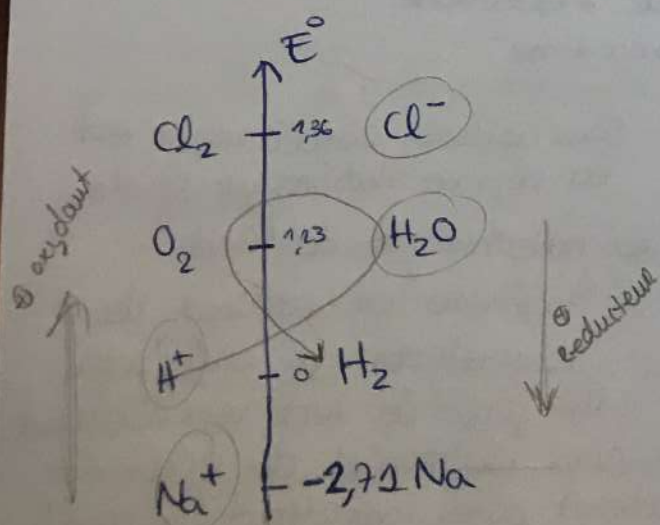 E°
Cl₂ 1,36 Cl⁻
O₂ 1,23 H₂O
H⁺ 0 H₂
Na⁺ -2,71 Na
⊕ oxydant
⊕ reducteur